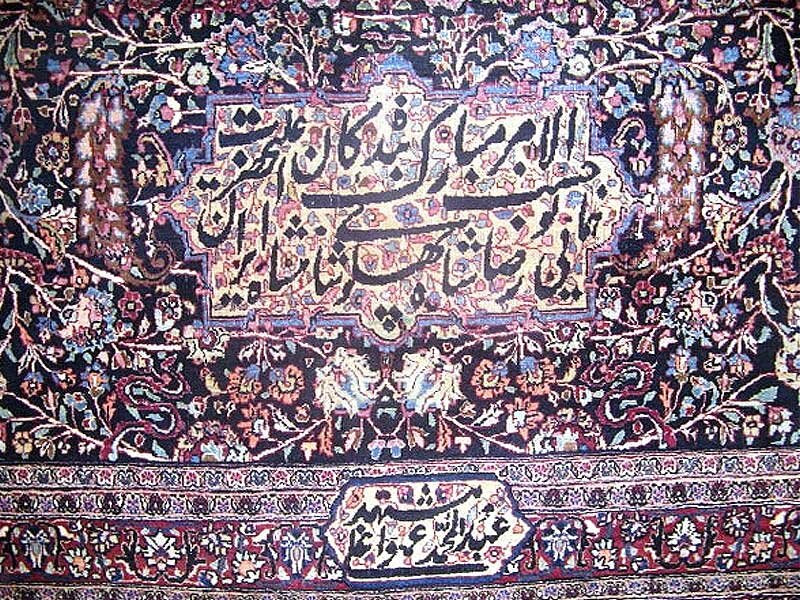 حسب الامر مبارک بندگان اعلیحضرت
همایونی رضا شاه پهلوی شاهنشاه ایران
مشهد
عبدالمحمد عمواغلی